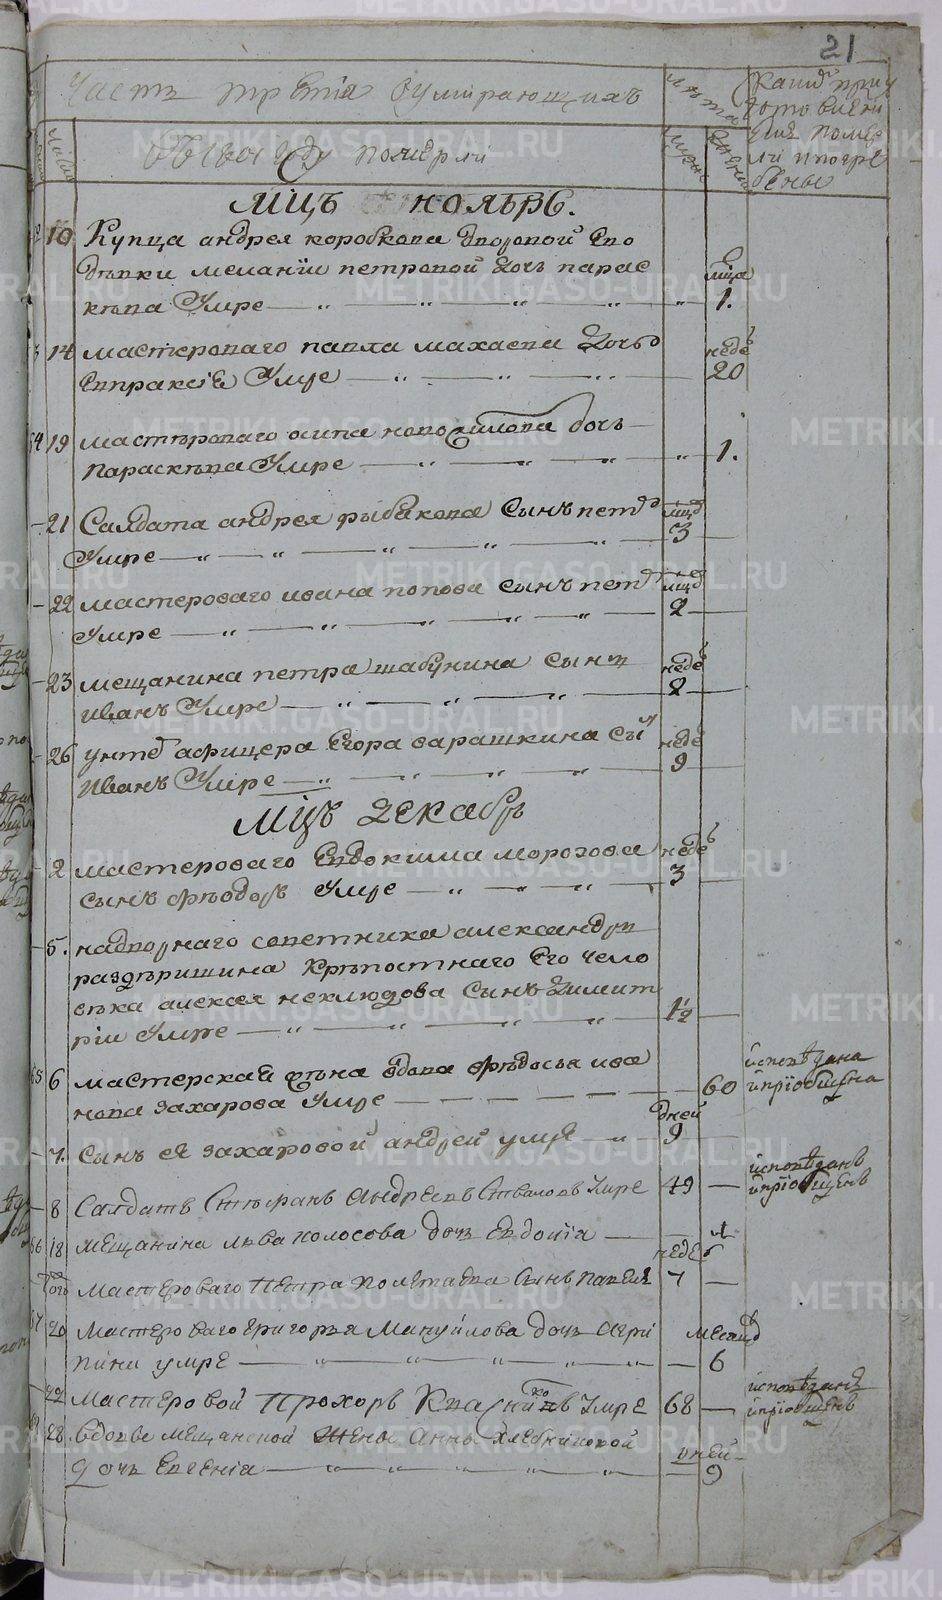 21
Часть третiя О умирающихъ
лѣта
Каким при
готовлени
ем поме
ли и погре
бены
Въ 1801 году померли
мцъ ноябрь.
10 Купца андрея коробкова дворовой ево
дѣвки меланiи петровой дочь парас
кѣва Умре мца 1.
14 мастероваго павла махаева дочь
Евпраксiя Умре неде 20
19 мастероваго осипа новоселова дочь
Параскѣва Умре 1.
21 Салдата андрея рыбакова сынъ петр мцъ
Умре 3
22 мастероваго ивана попова сынъ петр мцъ
Умре 2
23 мещанина петра шабунина сынъ неде
иванъ Умре 2
26 унте афицера Егора варашкина сы неде
Иванъ Умре 9
мцъ декабрь
2 мастероваго Евдокима морозова неде
сынъ фѣодоръ Умре 3
5. надворнаго советника александра
раздѣришина Крѣпостнаго Его чело
вѣка алексея неклюдова сынъ димит
рiи Умре 1½
6 мастерская жена вдова фѣдосья ива
нова захарова Умре 60 исповѣдана
и прiобщена
7. сынъ ея захаровой андрей умре дней 9
8 Салдатъ Стѣфанъ Андреевъ Умре 49 исповѣданъ
и прiобщенъ
18 мещанина лва колосова дочь евдокiя
того мастероваго Петра Полетаева сынъ павелъ неде 7
20 Мастероваго григорья Мануилова дочь агри
пина умре месяц 6
22 Мастеровой Прохоръ Умре 68 исповѣданъ
и прiобщенъ
28 вдовы мещанской жены Анны хлебниковой
дочь Евгенiя дней 9
METRIKI.GASO-URAL.RU